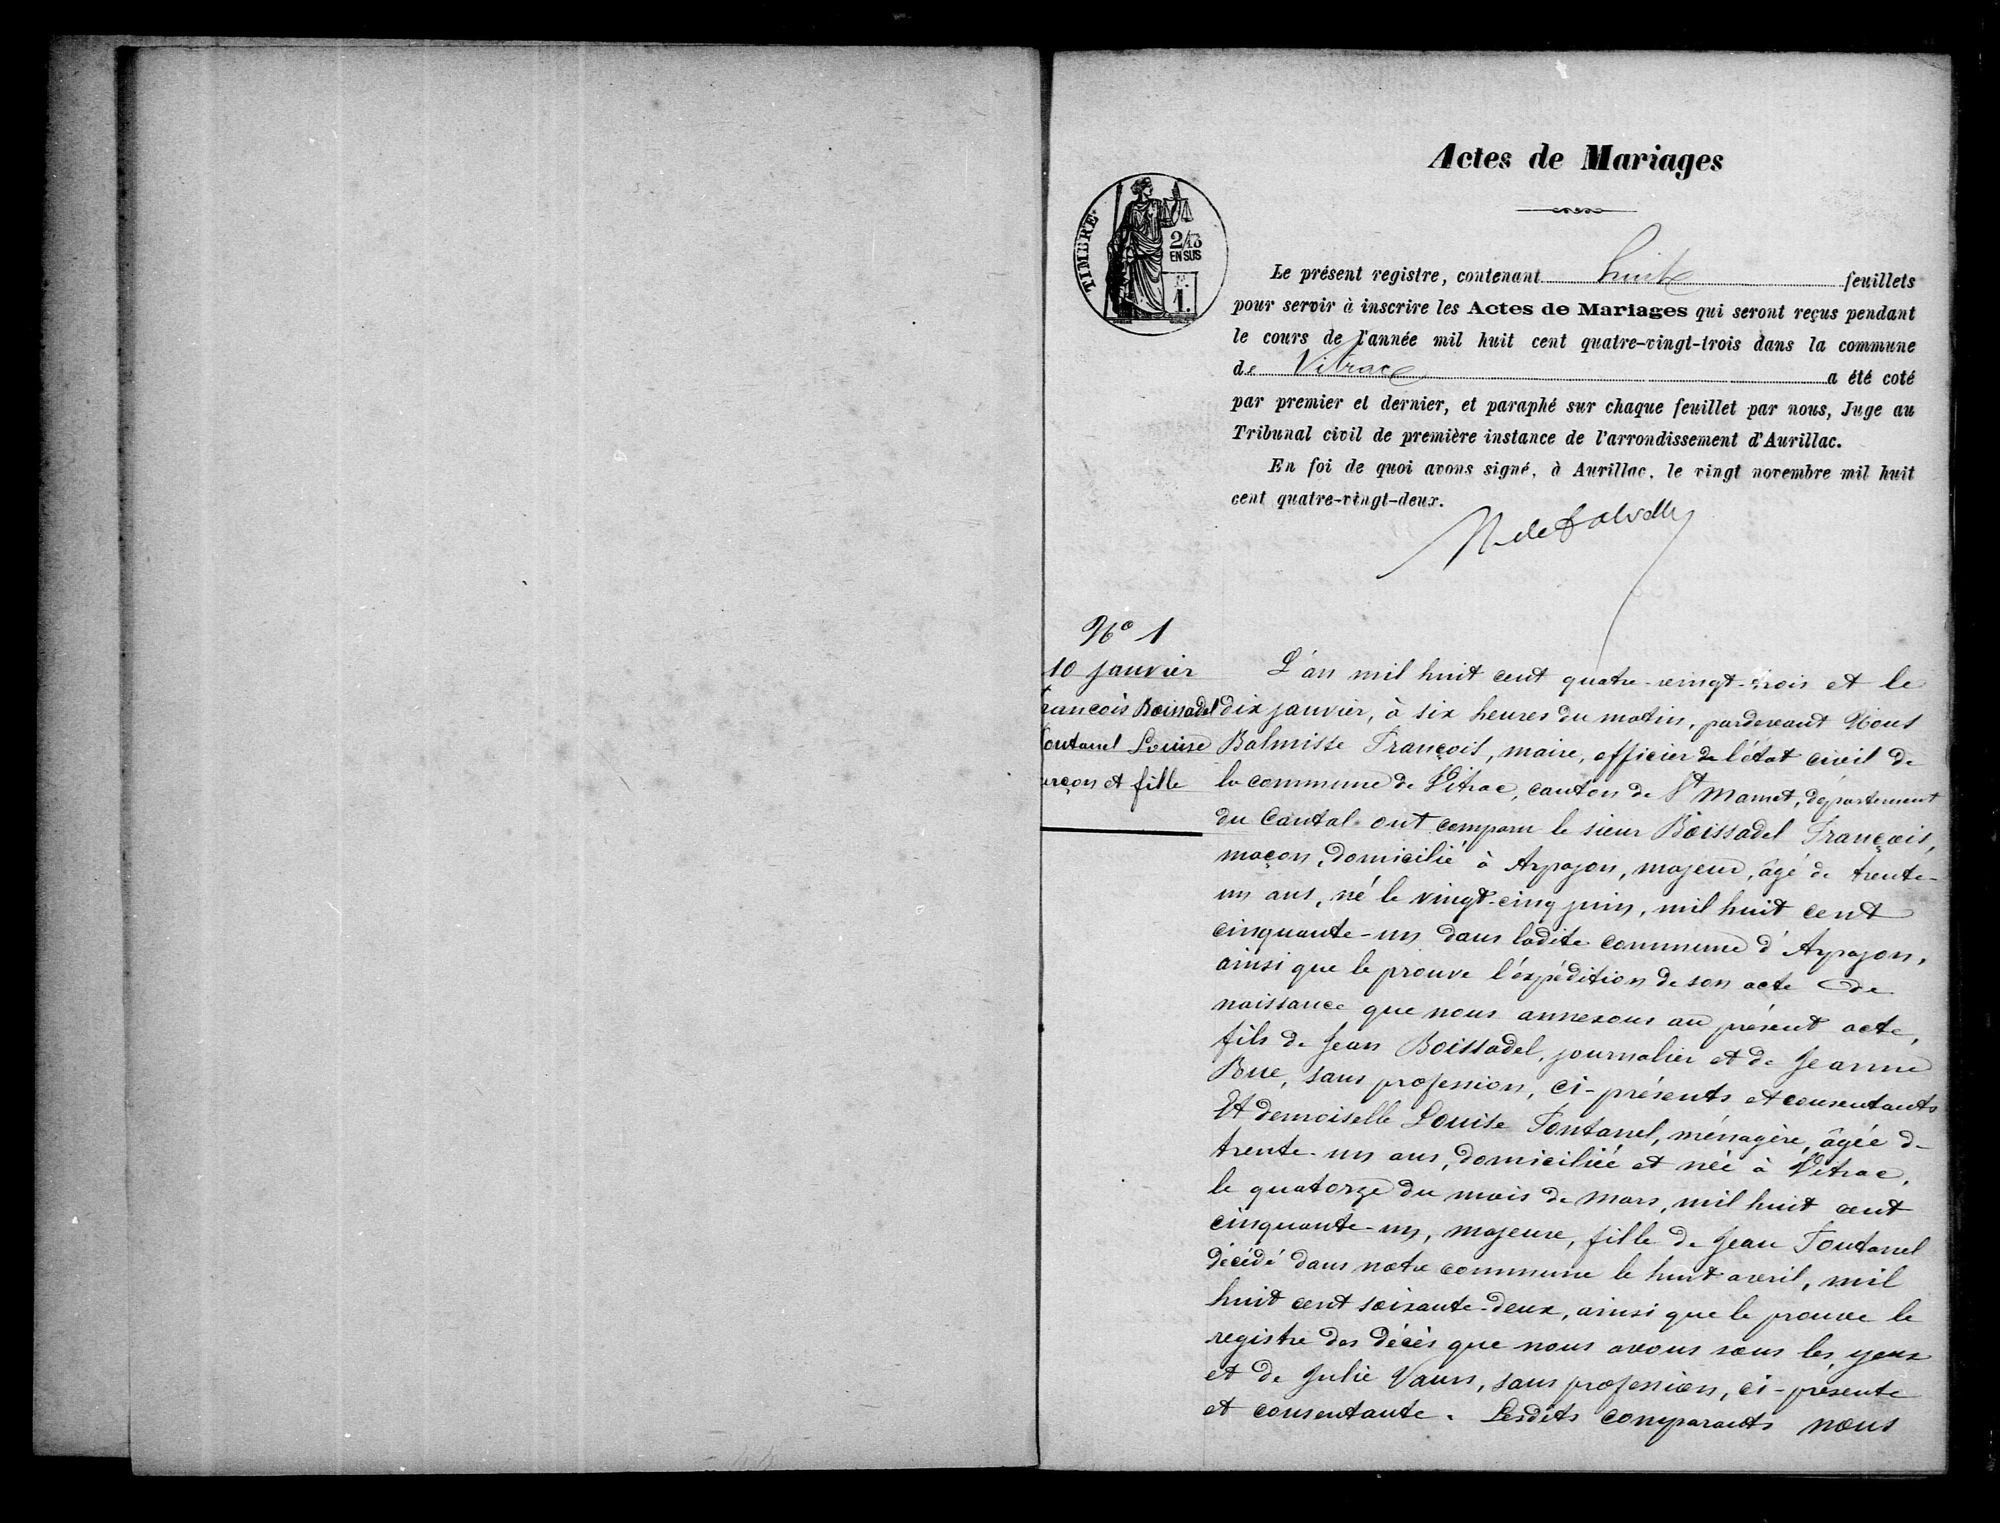 Actes de Mariages
TIMBRE
2/10
EN SUS
1.
Le présent registre, contenant huit feuillets
pour servir à inscrire les Actes de Mariages qui seront reçus pendant
le cours de l'année mil huit cent quatre-vingt-trois dans la commune
de Vitrac a été coté
par premier et dernier, et paraphé sur chaque feuillet par nous, Juge au
Tribunal civil de première instance de l'arrondissement d'Aurillac.
En foi de quoi avons signé, à Aurillac, le vingt novembre mil huit
cent quatre-vingt-deux.
No 1
10 janvier
rancois Boissadel
ontanel Louise
rçon et fille
L'an mil huit cent quatre-vingt-trois et le
dix janvier, à six heures du matin, pardevant Nous
Balmisse François, maire, officier de l'état civil de
la commune de Vitrac, canton de St Mamet, département
du Cantal ont comparu le sieur Boissadel François,
maçon, domicilié à Arpajon, majeur, âgé de trente-
un ans, né le vingt-cinq juin, mil huit cent
cinquante-un dans ladite commune d'Arpajon,
ainsi que le prouve l'expédition de son acte de
naissance que nous annexons au présent acte,
fils de Jean Boissadel, journalier et de Jeanne
Bue, sans profession, ci-présents et consentants
Et demoiselle Louise Fontanel, ménagère, âgée de
trente-un ans, domiciliée et née à Vitrac,
le quatorze du mois de mars, mil huit cent
cinquante-un, majeure, fille de Jean Fontanel
décédé dans notre commune le huit avril, mil
huit cent soixante-deux, ainsi que le prouve le
registre des décès que nous avons sous les yeux
et de Julie Vaurs, sans profession, ci-présente
et consentante. Lesdits comparants nous